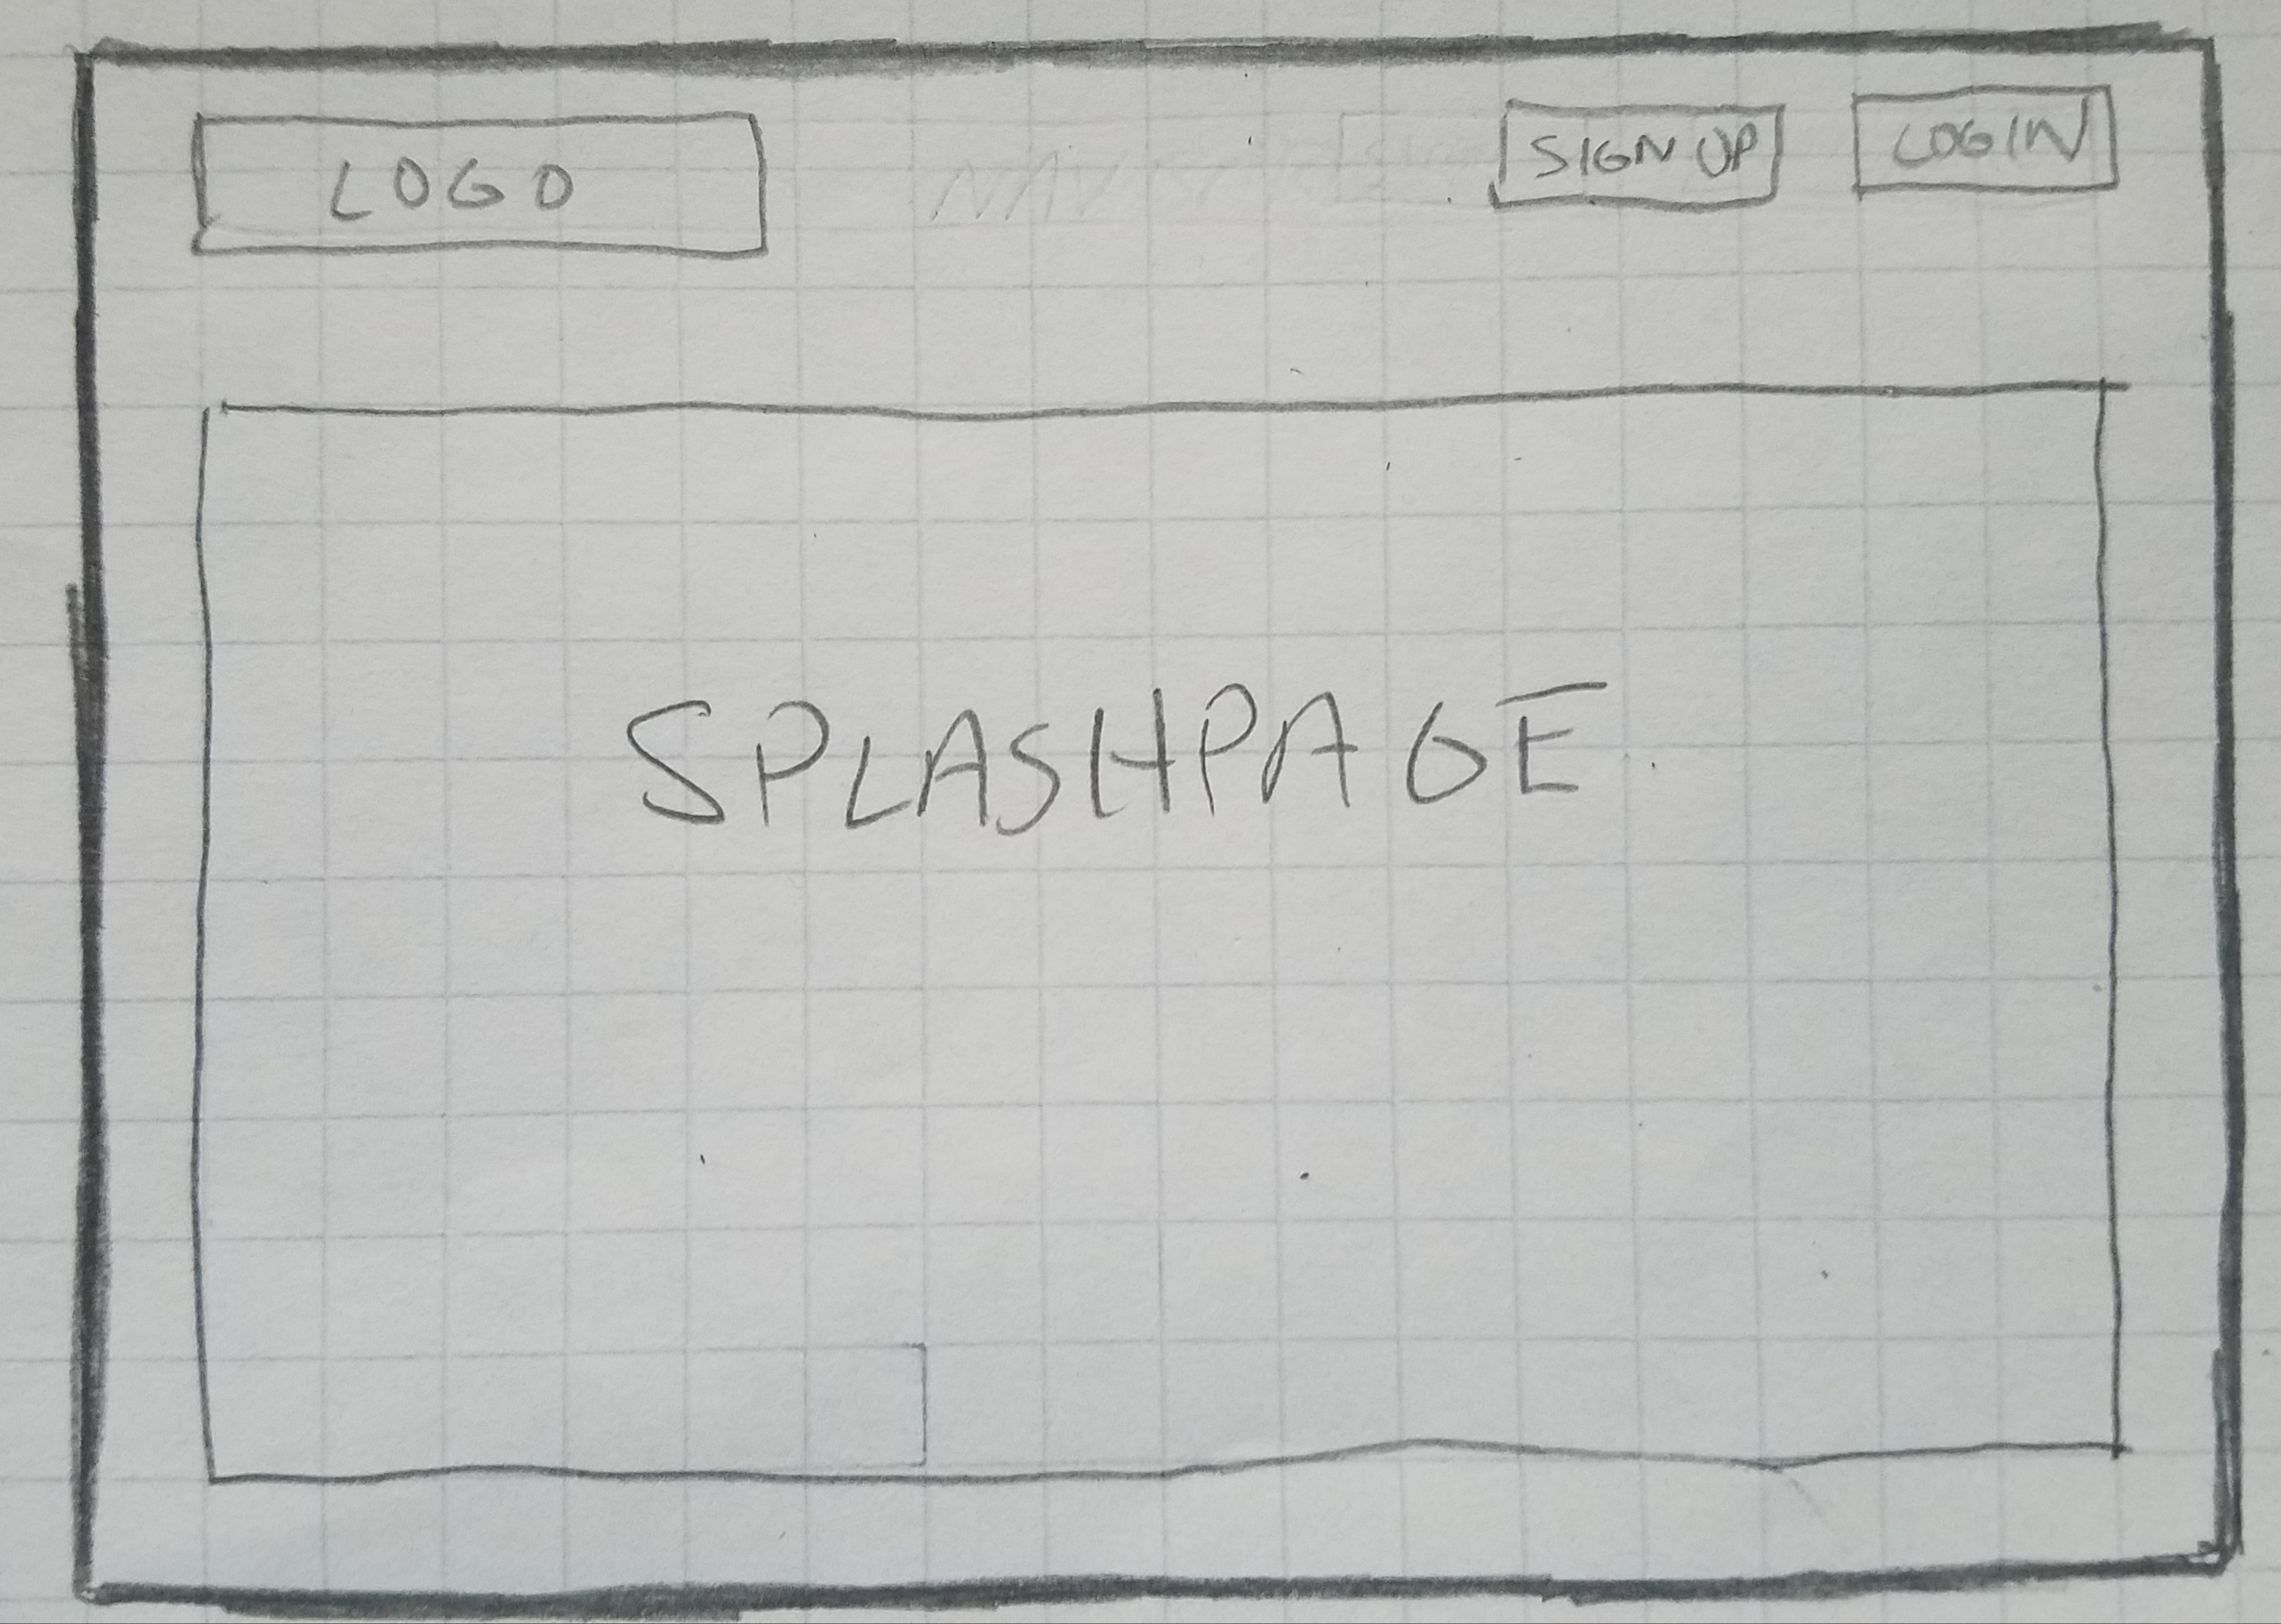 LOGO
SIGN UP
LOGIN
SPLASHPAGE